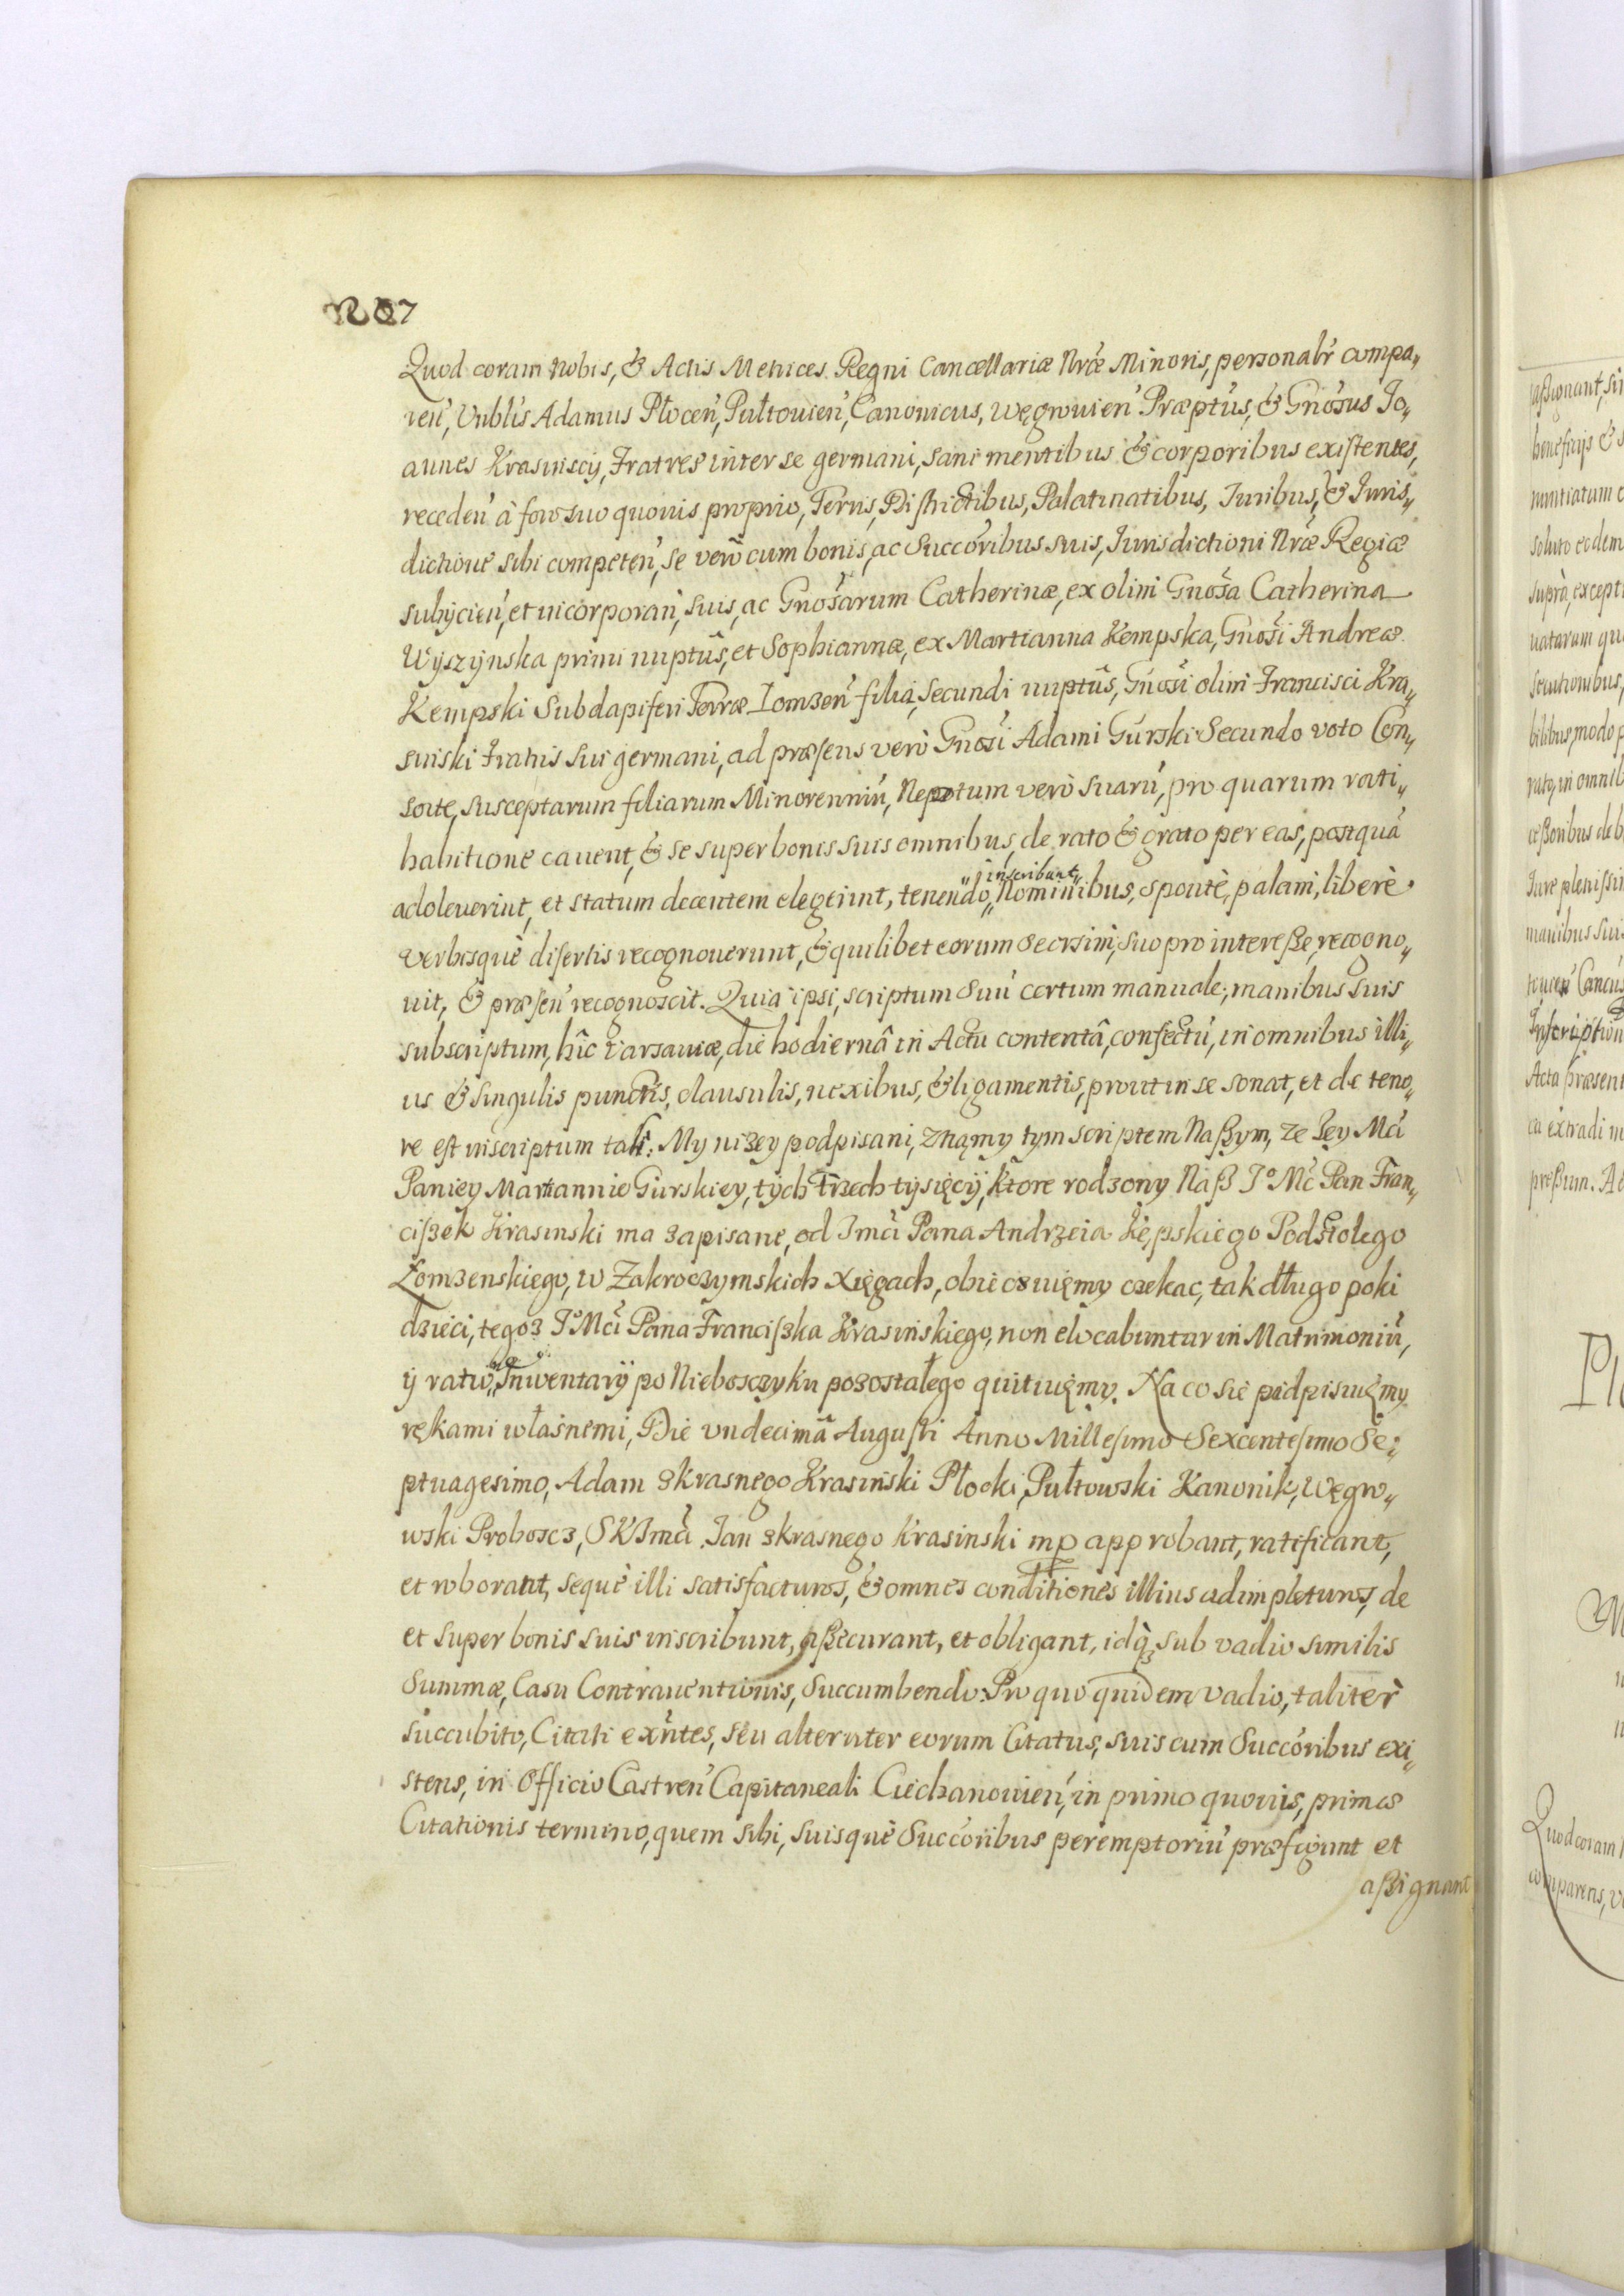 Quod coram nobis, & Actis Metrices Regni Cancellariæ Nræ Minoris, personalr compa„
ren, Vnblis Adamus Płocen, Pułtouien, Canonicus, Węgrouien Præptus, & Gnosus Jo„
annes Krasinscy, Fratres inter se germani, sani mentibus & corporibus existentes,
receden à foro suo quouis proprio, Terris, Districtibus, Palatinatibus, Iuribus, & Iuris„
dictione sibi competen, se verò cum bonis, ac Succoribus suis, Iurisdictioni Nræ Regiæ
subijcien, et incorporan, suis, ac Gnosarum Catherinæ, ex olim Gnosa Catherina
Wyszynska primi nuptus, et Sophiannæ, ex Martianna Kempska, Gnosi Andreæ
Kempski Subdapiferi Terræ Lomzen filia, secundi nuptûs, Gnosi olim Francisci Kra„
sinski Fratris sui germani, ad præsens verò Gnosi Adami Gurski Secundo voto Con„
sorte, susceptarum filiarum Minorenniũ, Nepotum verò suarũ, pro quarum rati„
habitione cauent, & se super bonis suis omnibus, de rato & grato per eas, postquã
inscribunt„
adoleuerint, et statum decentem elegerint, tenendo„ Nominibus, spontè, palam, liberè
verbisquè disertis recognouerunt, & quilibet eorum seorsim, suo pro interesse, recogno„
uit, & præsen recognoscit. Quia ipsi, scriptum Suũ certum manuale, manibus suis
subscriptum, hîc Varsauiæ, die hodiernâ in Actu contentâ, confectũ, in omnibus illi„
us & singulis punctis, clausulis, nexibus, & ligamentis, prout in se sonat, et de teno„
re est inscriptum tali: My nizey podpisani, Znąmy tym scriptem Naßym, ze Iey Mci
Paniey Martiannie Gurskiey, tych Trzech tysięcy, ktore rodzony Naß Jo Mc Pan Fran„
cißek Krasinski ma zapisane, od Jmci Pana Andrzeia Kępskiego Podstolego
Łomzenskiego, w Zakroczymskich Xięgach, obiecuięmy czekac, tak długo poki
dzieci, tegoz Jo Mci Pana Francißka Krasinskiego, non elocabuntur in Matrimoniũ,
y ratio„ Inwentarÿ po Nieboszczyku pozostałego quituięmy. Na co się pidpisuięmy
rękami własnemi, Die vndecimâ Augusti Anno Millesimo Sexcentesimo Se„
ptuagesimo, Adam z Krasnego Krasinski Płocki, Pułtowski Kanonik, Węgro„
wski Proboscz, SKJmci. Jan z Krasnego Krasinski mp approbant, ratificant,
et roborant, sequè illi satisfacturos, & omnes conditiones illius adimpleturos, de
et super bonis suis inscribunt, aßecurant, et obligant, idq, sub vadio similis
Summæ, Casu Contrauentionis, Succumbendo: Pro quo quidem vadio, taliter
succubito, Citati exñtes, seu alteruter eorum Citatus, suis cum Succoribus exi„
stens, in Officio Castren Capitaneali Ciechanouien, in primo quouis, primæ
Citationis termino, quem sibi, suisquè Succoribus peremptoriũ præfigunt et
aßignant